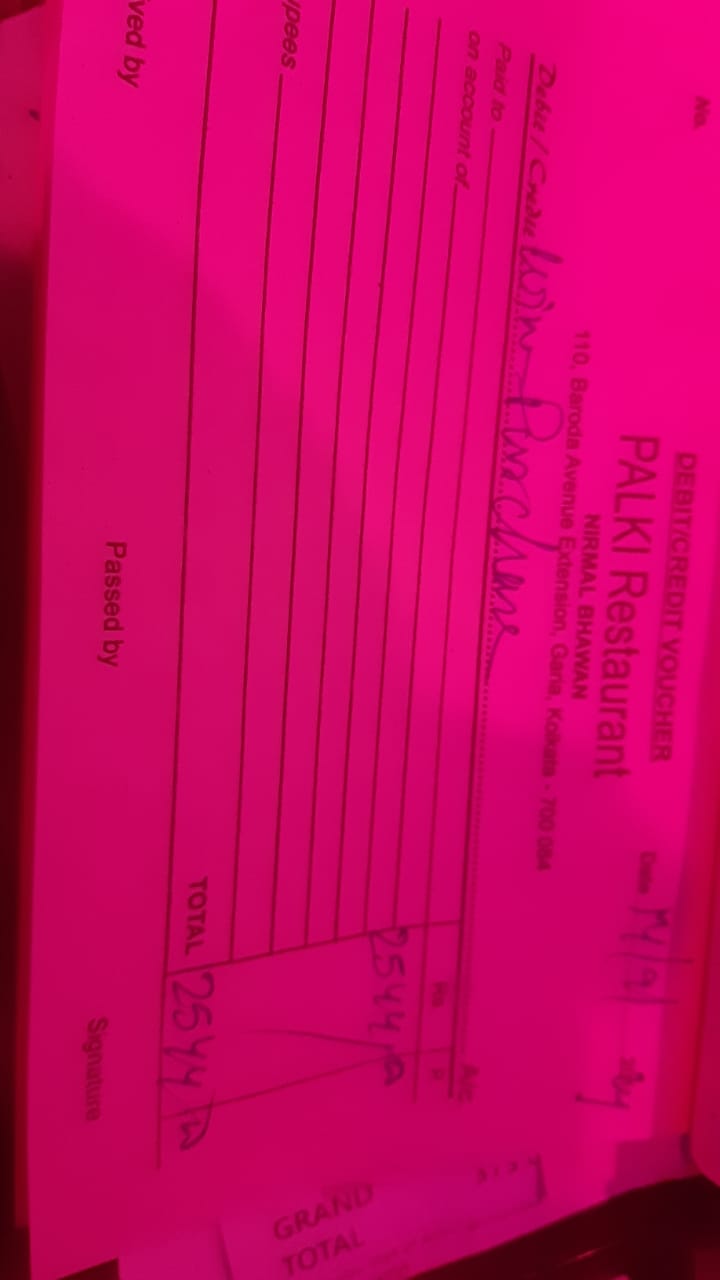 No.
DEBIT/CREDIT VOUCHER
PALKI Restaurant
Date 14/9/
NIRMAL BHAWAN
110, Baroda Avenue Extension, Garia, Kolkata - 700 084
Debit / Credit Wine Purchase A/c
Paid to
on account of
Rs P.
2544
upees
TOTAL 2544
ved by Passed by Signature
GRAND
TOTAL